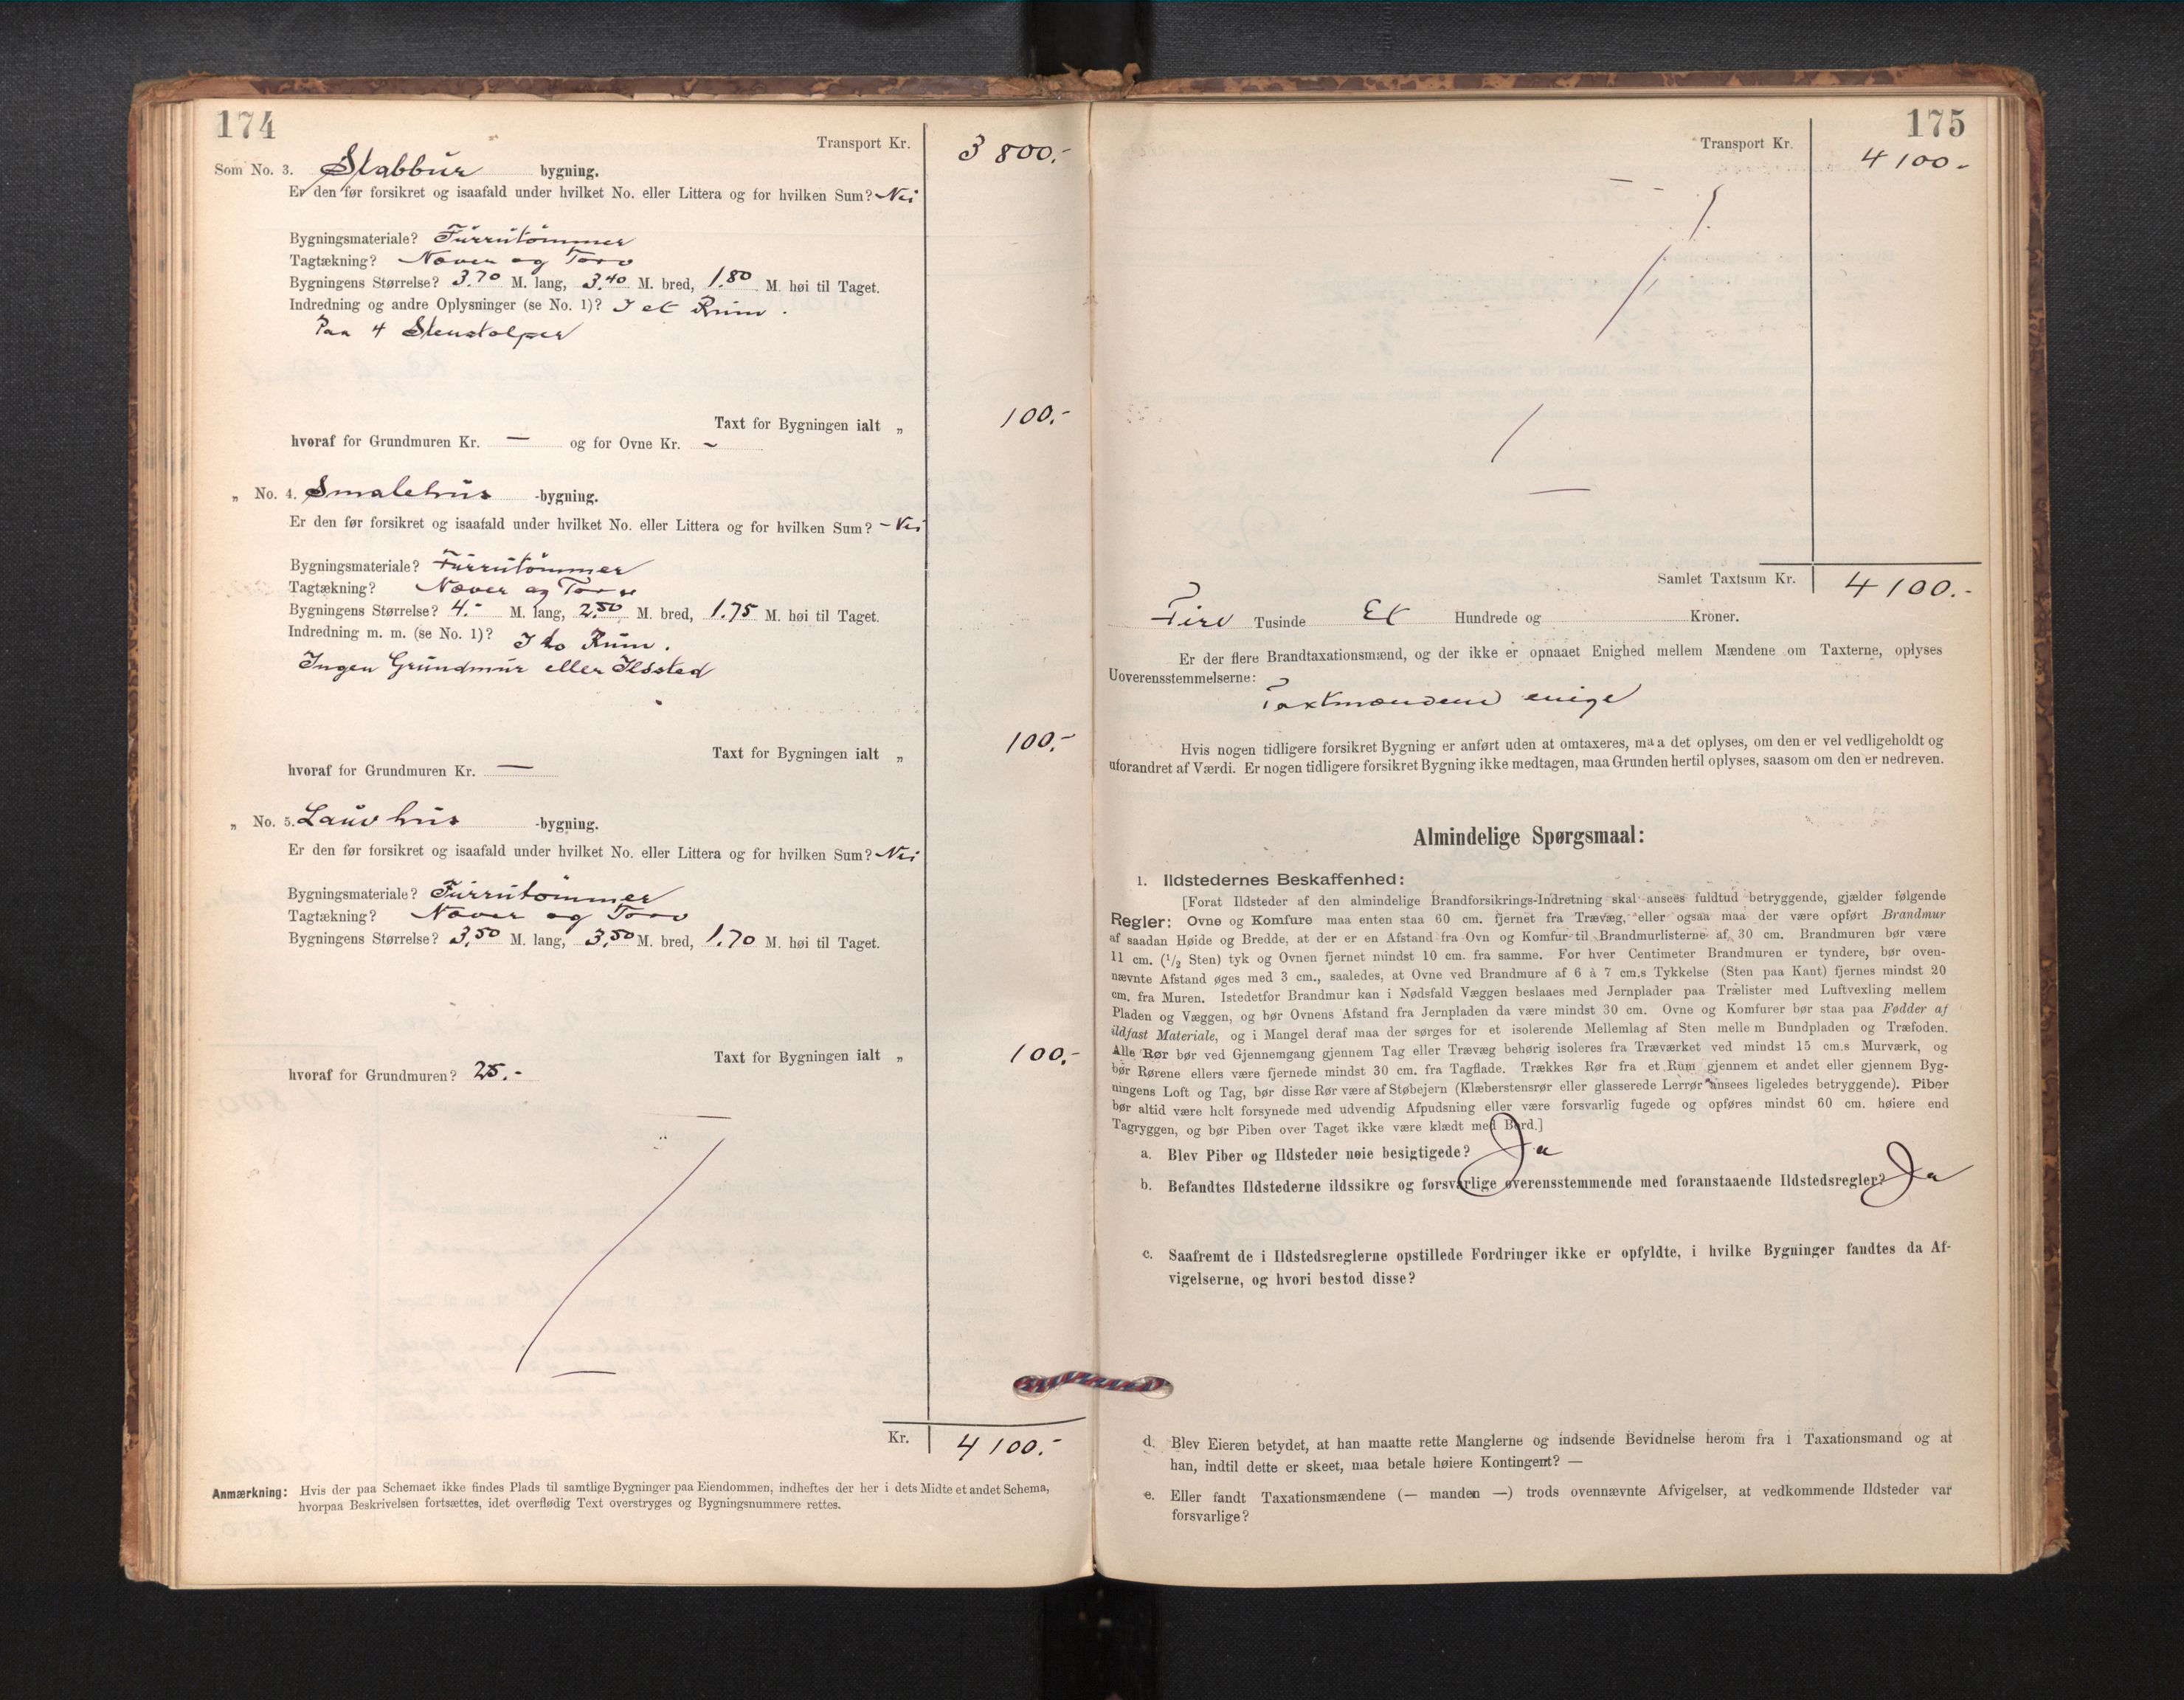 174
Transport Kr. 3 800.-
Som No. 3. Stabbur bygning.
Er den før forsikret og isaafald under hvilket No. eller Littera og for hvilken Sum? - Nei
Bygningsmateriale? Furrutømmer
Tagtækning? Næver og Torv
Bygningens Størrelse? 3.70 M. lang, 3.40 M. bred, 1.80 M. høi til Taget.
Indredning og andre Oplysninger (se No. 1)? I et Rum.
Paa 4 Stenstolper
Taxt for Bygningen ialt „ 100.-
hvoraf for Grundmuren Kr. — og for Ovne Kr. -
„ No. 4. Smalehus -bygning.
Er den før forsikret og isaafald under hvilket No. eller Littera og for hvilken Sum? - Nei
Bygningsmateriale? Furrutømmer
Tagtækning? Næver og Torv
Bygningens Størrelse? 4.- M. lang, 2.50 M. bred, 1.75 M. høi til Taget.
Indredning m. m. (se No. 1)? I to Rum.
Ingen Grundmur eller Ildsted
Taxt for Bygningen ialt „ 100.-
hvoraf for Grundmuren Kr. —
„ No. 5. Lauvhus -bygning.
Er den før forsikret og isaafald under hvilket No. eller Littera og for hvilken Sum? - Nei
Bygningsmateriale? Furrutømmer
Tagtækning? Næver og Torv
Bygningens Størrelse? 3,50 M. lang, 3,50 M. bred, 1.70 M. høi til Taget.
Taxt for Bygningen ialt „ 100.-
hvoraf for Grundmuren? 25.-
Kr. 4 100.-
Anmærkning: Hvis der paa Schemaet ikke findes Plads til samtlige Bygninger paa Eiendommen, indheftes der her i dets Midte et andet Schema,
hvorpaa Beskrivelsen fortsættes, idet overflødig Text overstryges og Bygningsnummere rettes.
175
Transport Kr. 4 100-
Samlet Taxtsum Kr. 4 100.-
Fire Tusinde Et Hundrede og Kroner.
Er der flere Brandtaxationsmænd, og der ikke er opnaaet Enighed mellem Mændene om Taxterne, oplyses
Uoverensstemmelserne:
Taxtmændene enige
Hvis nogen tidligere forsikret Bygning er anført uden at omtaxeres, maa det oplyses, om den er vel vedligeholdt og
uforandret af Værdi. Er nogen tidligere forsikret Bygning ikke medtagen, maa Grunden hertil oplyses, saasom om den er nedreven.
Almindelige Spørgsmaal:
1. Ildstedernes Beskaffenhed:
[Forat Ildsteder af den almindelige Brandforsikrings-Indretning skal ansees fuldtud betryggende, gjælder følgende
Regler: Ovne og Komfure maa enten staa 60 cm. fjernet fra Trævæg, eller ogsaa maa der være opført Brandmur
af saadan Høide og Bredde, at der er en Afstand fra Ovn og Komfur til Brandmurlisterne af 30 cm. Brandmuren bør være
11 cm. (1/2 Sten) tyk og Ovnen fjernet mindst 10 cm. fra samme. For hver Centimeter Brandmuren er tyndere, bør oven-
nævnte Afstand øges med 3 cm., saaledes, at Ovne ved Brandmure af 6 à 7 cm.s Tykkelse (Sten paa Kant) fjernes mindst 20
cm. fra Muren. Istedetfor Brandmur kan i Nødsfald Væggen beslaaes med Jernplader paa Trælister med Luftvexling mellem
Pladen og Væggen, og bør Ovnens Afstand fra Jernpladen da være mindst 30 cm. Ovne og Komfurer bør staa paa Fødder af
ildfast Materiale, og i Mangel deraf maa der sørges for et isolerende Mellemlag af Sten mellem Bundpladen og Træfoden.
Alle Rør bør ved Gjennemgang gjennem Tag eller Trævæg behørig isoleres fra Træværket ved mindst 15 cm.s Murværk, og
bør Rørene ellers være fjernede mindst 30 cm. fra Tagflade. Trækkes Rør fra et Rum gjennem et andet eller gjennem Byg-
ningens Loft og Tag, bør disse Rør være af Støbejern (Klæberstensrør eller glasserede Lerrør ansees ligeledes betryggende). Piber
bør altid være helt forsynede med udvendig Afpudsning eller være forsvarlig fugede og opføres mindst 60 cm. høiere end
Tagryggen, og bør Piben over Taget ikke være klædt med Bord.]
a. Blev Piber og Ildsteder nøie besigtigede? Ja
b. Befandtes Ildstederne ildssikre og forsvarlige overensstemmende med foranstaaende Ildstedsregler? Ja
c. Saafremt de i Ildstedsreglerne opstillede Fordringer ikke er opfyldte, i hvilke Bygninger fandtes da Af-
vigelserne, og hvori bestod disse?
d. Blev Eieren betydet, at han maatte rette Manglerne og indsende Bevidnelse herom fra 1 Taxationsmand og at
han, indtil dette er skeet, maa betale høiere Kontingent? —
e. Eller fandt Taxationsmændene (— manden —) trods ovennævnte Afvigelser, at vedkommende Ildsteder var
forsvarlige?